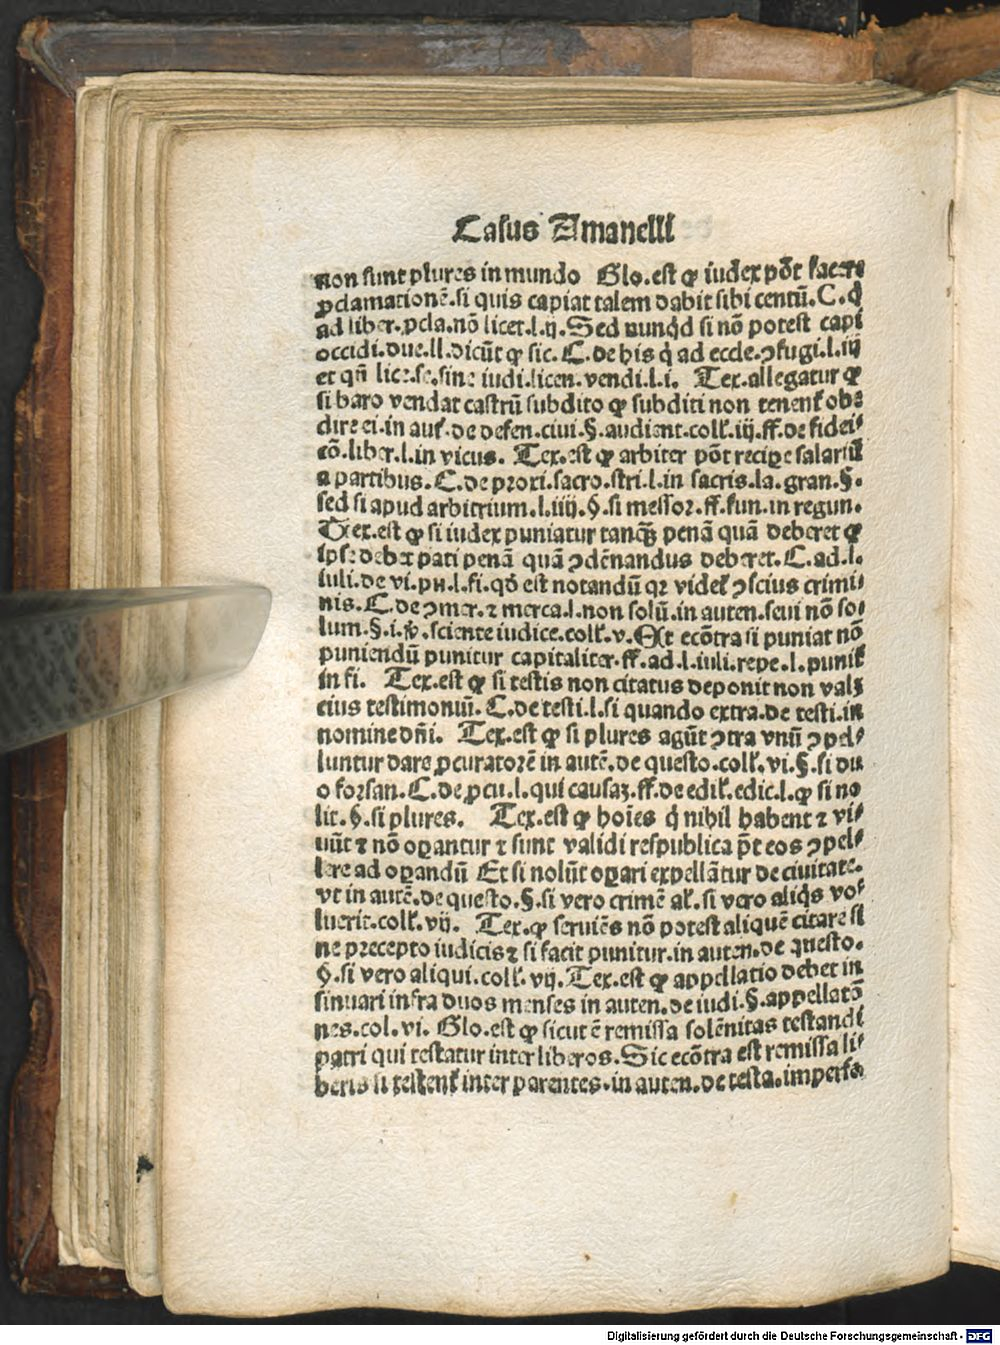 Casus Amanelli
non sunt plures in mundo Glo.est ꝙ iudex põt facere
ꝓclamationẽ.si quis capiat talem dabit sibi centũ.C.q̇
ad liber.ꝓcla.nõ licet.l.ij.Sed nunq̇d si nõ potest capi
occidi.due.ll.dicũt ꝙ sic. C.de his q̇ ad eccle.ↄfugi.l.iij
et qñ lice.se.sine iudi.licen.vendi.l.i. Tex.allegatur ꝙ
si baro vendat castrũ subdito ꝙ subditi non tenenť obe
dire ei.in auť.de defen.ciui.§.audient.coll'.iij.ff.de fidei⸗
cõ.liber.l.in vicus. Tex.est ꝙ arbiter põt recipe salariũ
a partibus.C.de proxi.sacro.scri.l.in sacris.la.gran.§.
sed si apud arbitrium.l.iiij.§.si messor.ff.fun.in regun.
Tex.est ꝙ si iudex puniatur tanq̃ penã quã deberet ꝙ
ipse debet pati penã quã ↄdẽnandus deberet.C.ad.l.
iuli.de vi.pu.l.fi.qð est notandũ qꝛ videť ↄscius crimi⸗
nis.C.de ↄmer.ꝛ merca.l.non solũ.in auten.seui nõ so⸗
lum.§.i.ꝟ.sciente iudice.coll'.v.Et ecõtra si puniat nõ
puniendũ punitur capitaliter.ff.ad.l.iuli.repe.l.puniť
in fi. Tex.est ꝙ si testis non citatus deponit non valꝫ
eius testimoniũ. C.de testi.l.si quando extra.de testi.in
nomine dñi. Tex.est ꝙ si plures agũt ↄtra vnũ ↄpel⸗
luntur dare ꝓcuratorẽ in autẽ.de questo.coll'.vi.§.si du
o forsan.C.de ꝓcu.l.qui causaꝫ.ff.de edil'.edic.l.ꝙ si no
lit.§.si plures. Tex.est ꝙ hoĩes q̇ nihil habent ꝛ vi⸗
uũt ꝛ nõ oꝑantur ꝛ sunt validi respublica põt eos ↄpel⸗
lere ad oꝑandũ Et si nolũt oꝑari expellãtur de ciuitate.
vt in autẽ.de questo.§.si vero crimẽ al'.si vero aliq̇s vo⸗
luerit.coll'.vij. Tex.ꝙ seruiẽs nõ potest aliquẽ citare si
ne precepto iudicis ꝛ si facit punitur.in auten.de questo.
§.si vero aliqui.coll'.vij.Tex.est ꝙ appellatio debet in
sinuari infra duos menses in auten.de iudi.§.appellatõ
nes.col.vi. Glo.est ꝙ sicut ẽ remissa solẽnitas testandi
patri qui testatur inter liberos.Sic ecõtra est remissa li⸗
beris si testenť inter parentes.in auten.de testa.imperfe.
Digitalisierung gefördert durch die Deutsche Forschungsgemeinschaft - DFG